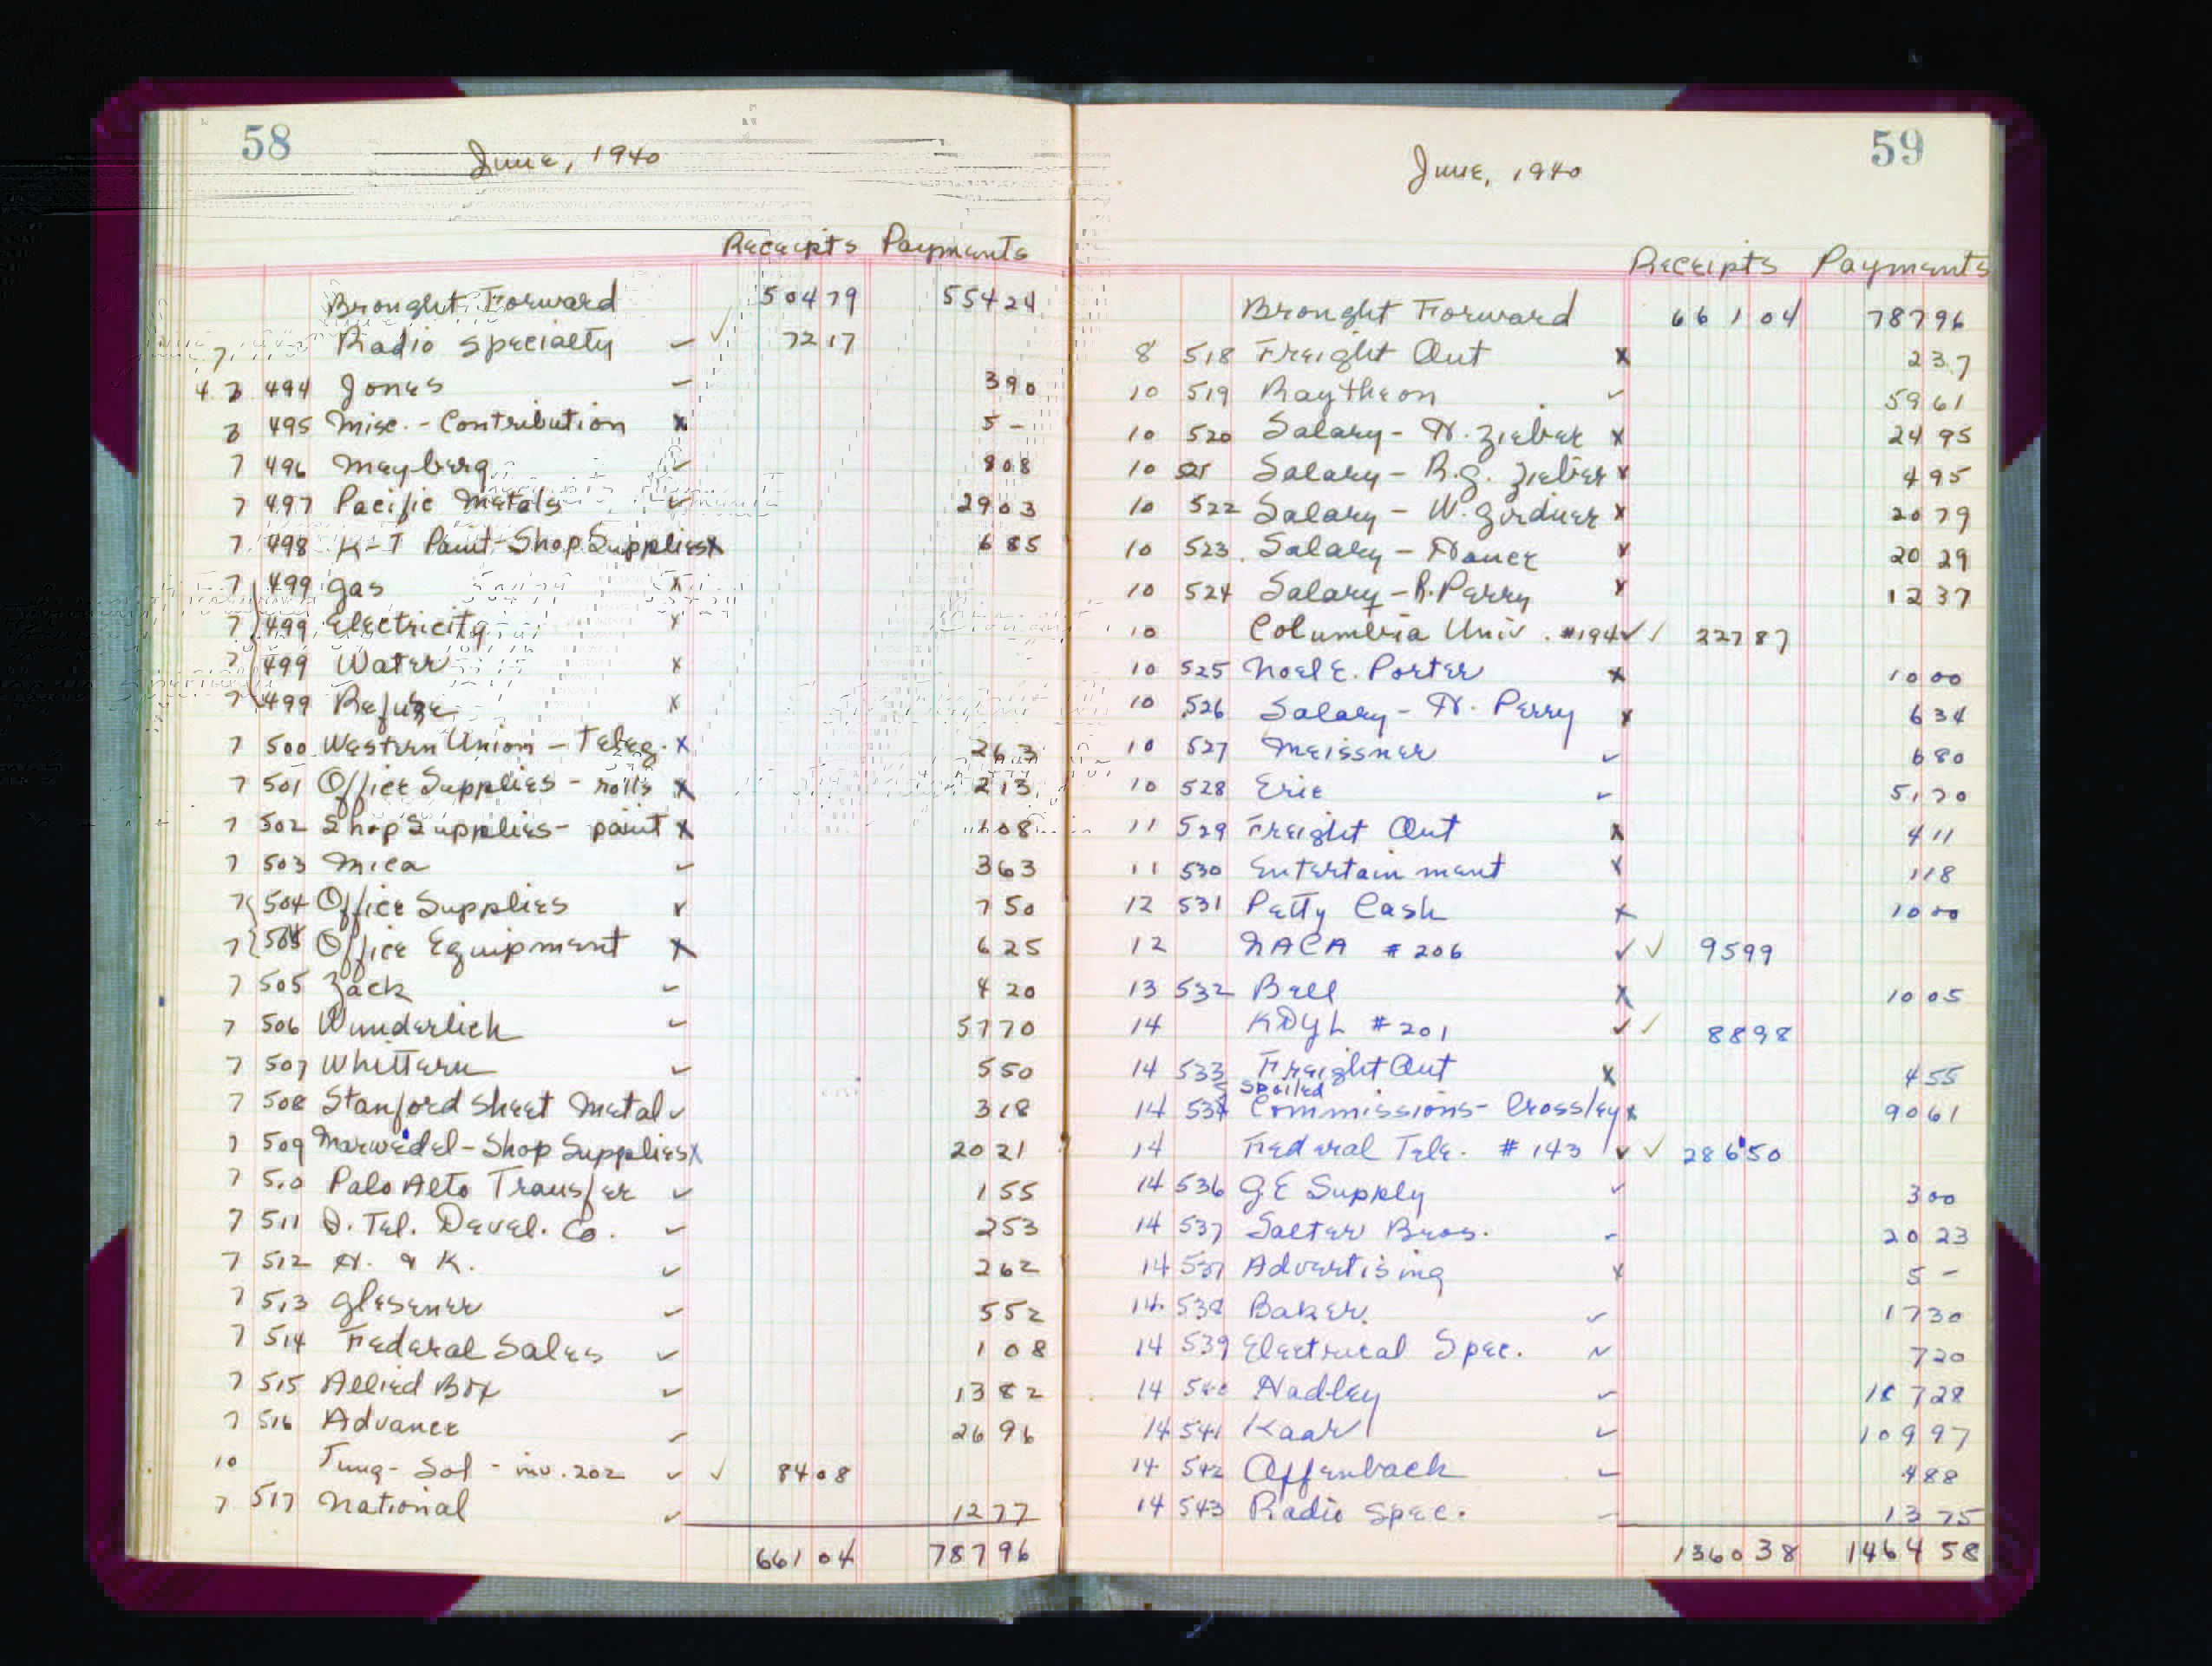 58
June, 1940
Receipts Payments
Brought Forward 504 79 554 24
7 Radio Specialty 72 17
3 494 Jones 3 90
3 495 Misc. - Contribution x 5 -
7 496 Meyberg 8 08
7 497 Pacific Metals 29 03
7 498 K-T Paint-Shop Supplies x 6 85
7 499 Gas x
7 499 Electricity x
7 499 Water x
7 499 Refuse x
7 500 Western Union - Teleg. x 2 63
7 501 Office Supplies - rolls x 2 13
7 502 Shop Supplies - paint x 1 08
7 503 Mica ✓ 3 63
7 504 Office Supplies x 7 50
7 504 Office Equipment x 6 25
7 505 Zack ✓ 4 20
7 506 Wunderlich ✓ 57 70
7 507 Whittern ✓ 5 50
7 508 Stanford Sheet Metal ✓ 3 18
7 509 Marwedel - Shop Supplies x 20 21
7 510 Palo Alto Transfer ✓ 1 55
7 511 Tel. Devel. Co. ✓ 2 53
7 512 H. & K. ✓ 2 62
7 513 Glesener ✓ 5 52
7 514 Federal Sales ✓ 1 08
7 515 Allied Box ✓ 13 82
7 516 Advance ✓ 26 96
10 Tung-Sol - inv. 202 ✓ ✓ 84 08
7 517 National ✓ 12 77
661 04 787 96
59
June, 1940
Receipts Payments
Brought Forward 661 04 787 96
8 518 Freight Out x 2 37
10 519 Raytheon ✓ 59 61
10 520 Salary - H. Zieber x 24 95
10 521 Salary - R.G. Zieber x 4 95
10 522 Salary - W. Girdner x 20 79
10 523 Salary - Hance x 20 29
10 524 Salary - R. Perry x 12 37
10 Columbia Univ. #194 ✓ ✓ 227 87
10 525 Noel E. Porter x 10 00
10 526 Salary - H. Perry x 6 34
10 527 Meissner ✓ 6 80
10 528 Erie ✓ 51 70
11 529 Freight Out x 4 11
11 530 Entertainment x 1 18
12 531 Petty Cash x 10 00
12 NACA #206 ✓ ✓ 95 99
13 532 Bell x 10 05
14 KDYL #201 ✓ ✓ 88 98
14 533 Freight Out x 4 55
Spoiled
14 535 Commissions - Crossley x 90 61
14 Federal Tele. #143 ✓ ✓ 286 50
14 536 GE Supply ✓ 3 00
14 537 Salter Bros. 20 23
14 537 Advertising x 5 -
14 538 Baker ✓ 17 30
14 539 Electrical Spec. ✓ 7 20
14 540 Hadley ✓ 187 28
14 541 Kaar ✓ 109 97
14 542 Offenbach ✓ 4 88
14 543 Radio Spec. 13 75
1360 38 1464 58